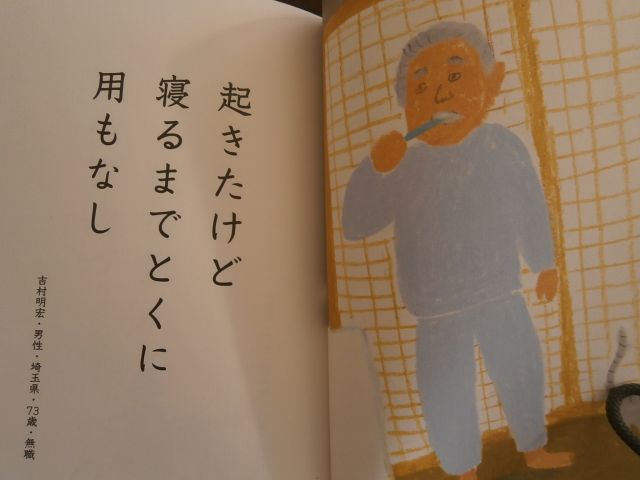 起きたけど
寝るまでとくに
用もなし
吉村明宏・男性・埼玉県・73歳・無職